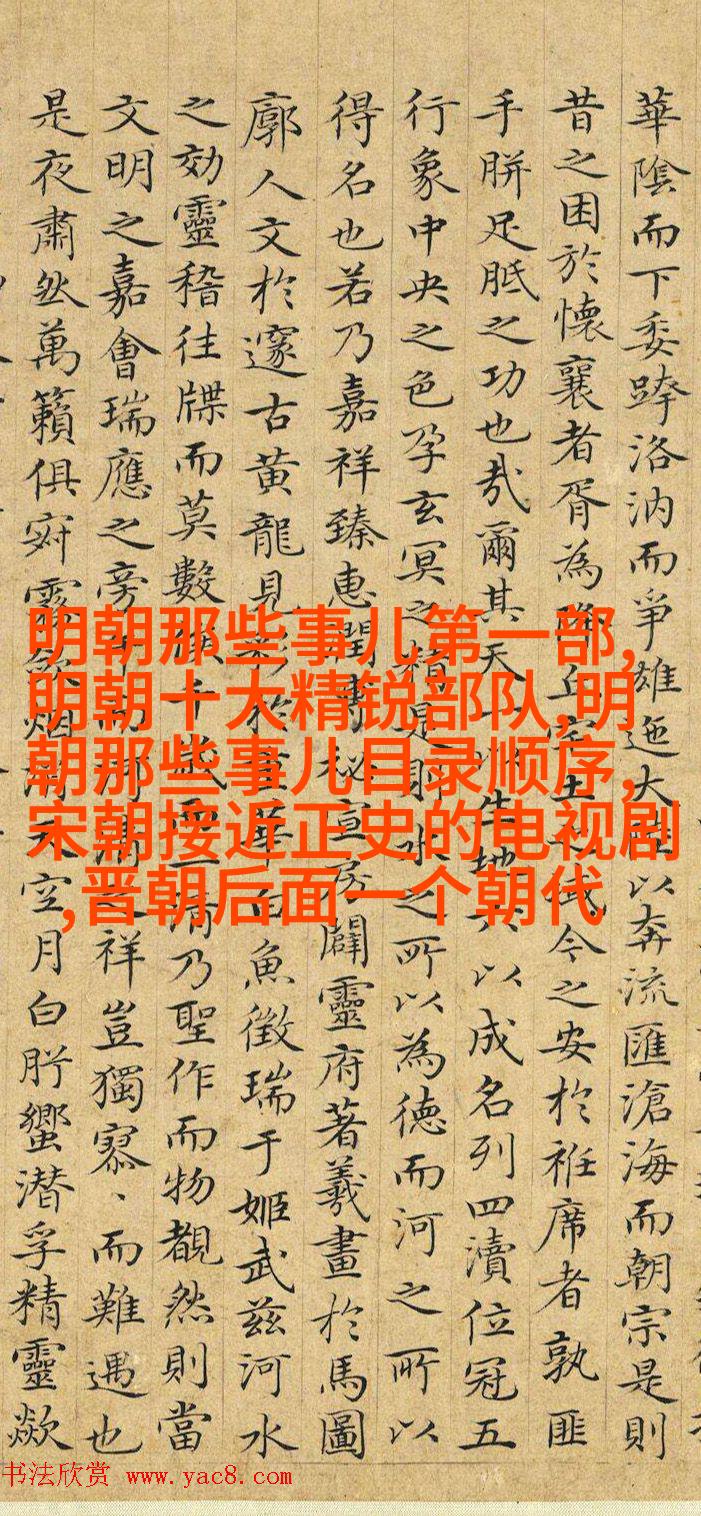 華陰而下委洛汭而爭雄迤大以奔流匯滄海而朝宗是則
昔之困於懷襄者胥為降丘宅土之今之安於袵席者孰匪
手胼足胝之功也哉爾其天一以生地六以成名列四瀆位冠五
行象中央之色孕玄冥之精是則水之所以為德而河之所以
得名也若乃嘉祥臻惠潤秘宣房闢靈府著羲畫於馬圖
廓人文於邃古黃龍見彩於重華白魚徵瑞于姬武茲河水
之効靈稽往牒而莫數俟千歲而一清乃聖作而物覩然則當
文明之嘉會瑞應之旁而清之祥豈獨寥、而難遇也
是夜肅然萬籟俱寂霧斂烟消天空月白肸蠁潛孚精靈歘
明朝那些事儿第一部,
明朝十大精锐部队,明
朝那些事儿目录顺序,
宋朝接近正史的电视剧
,晋朝后面一个朝代
书法欣赏 www.yac8.com